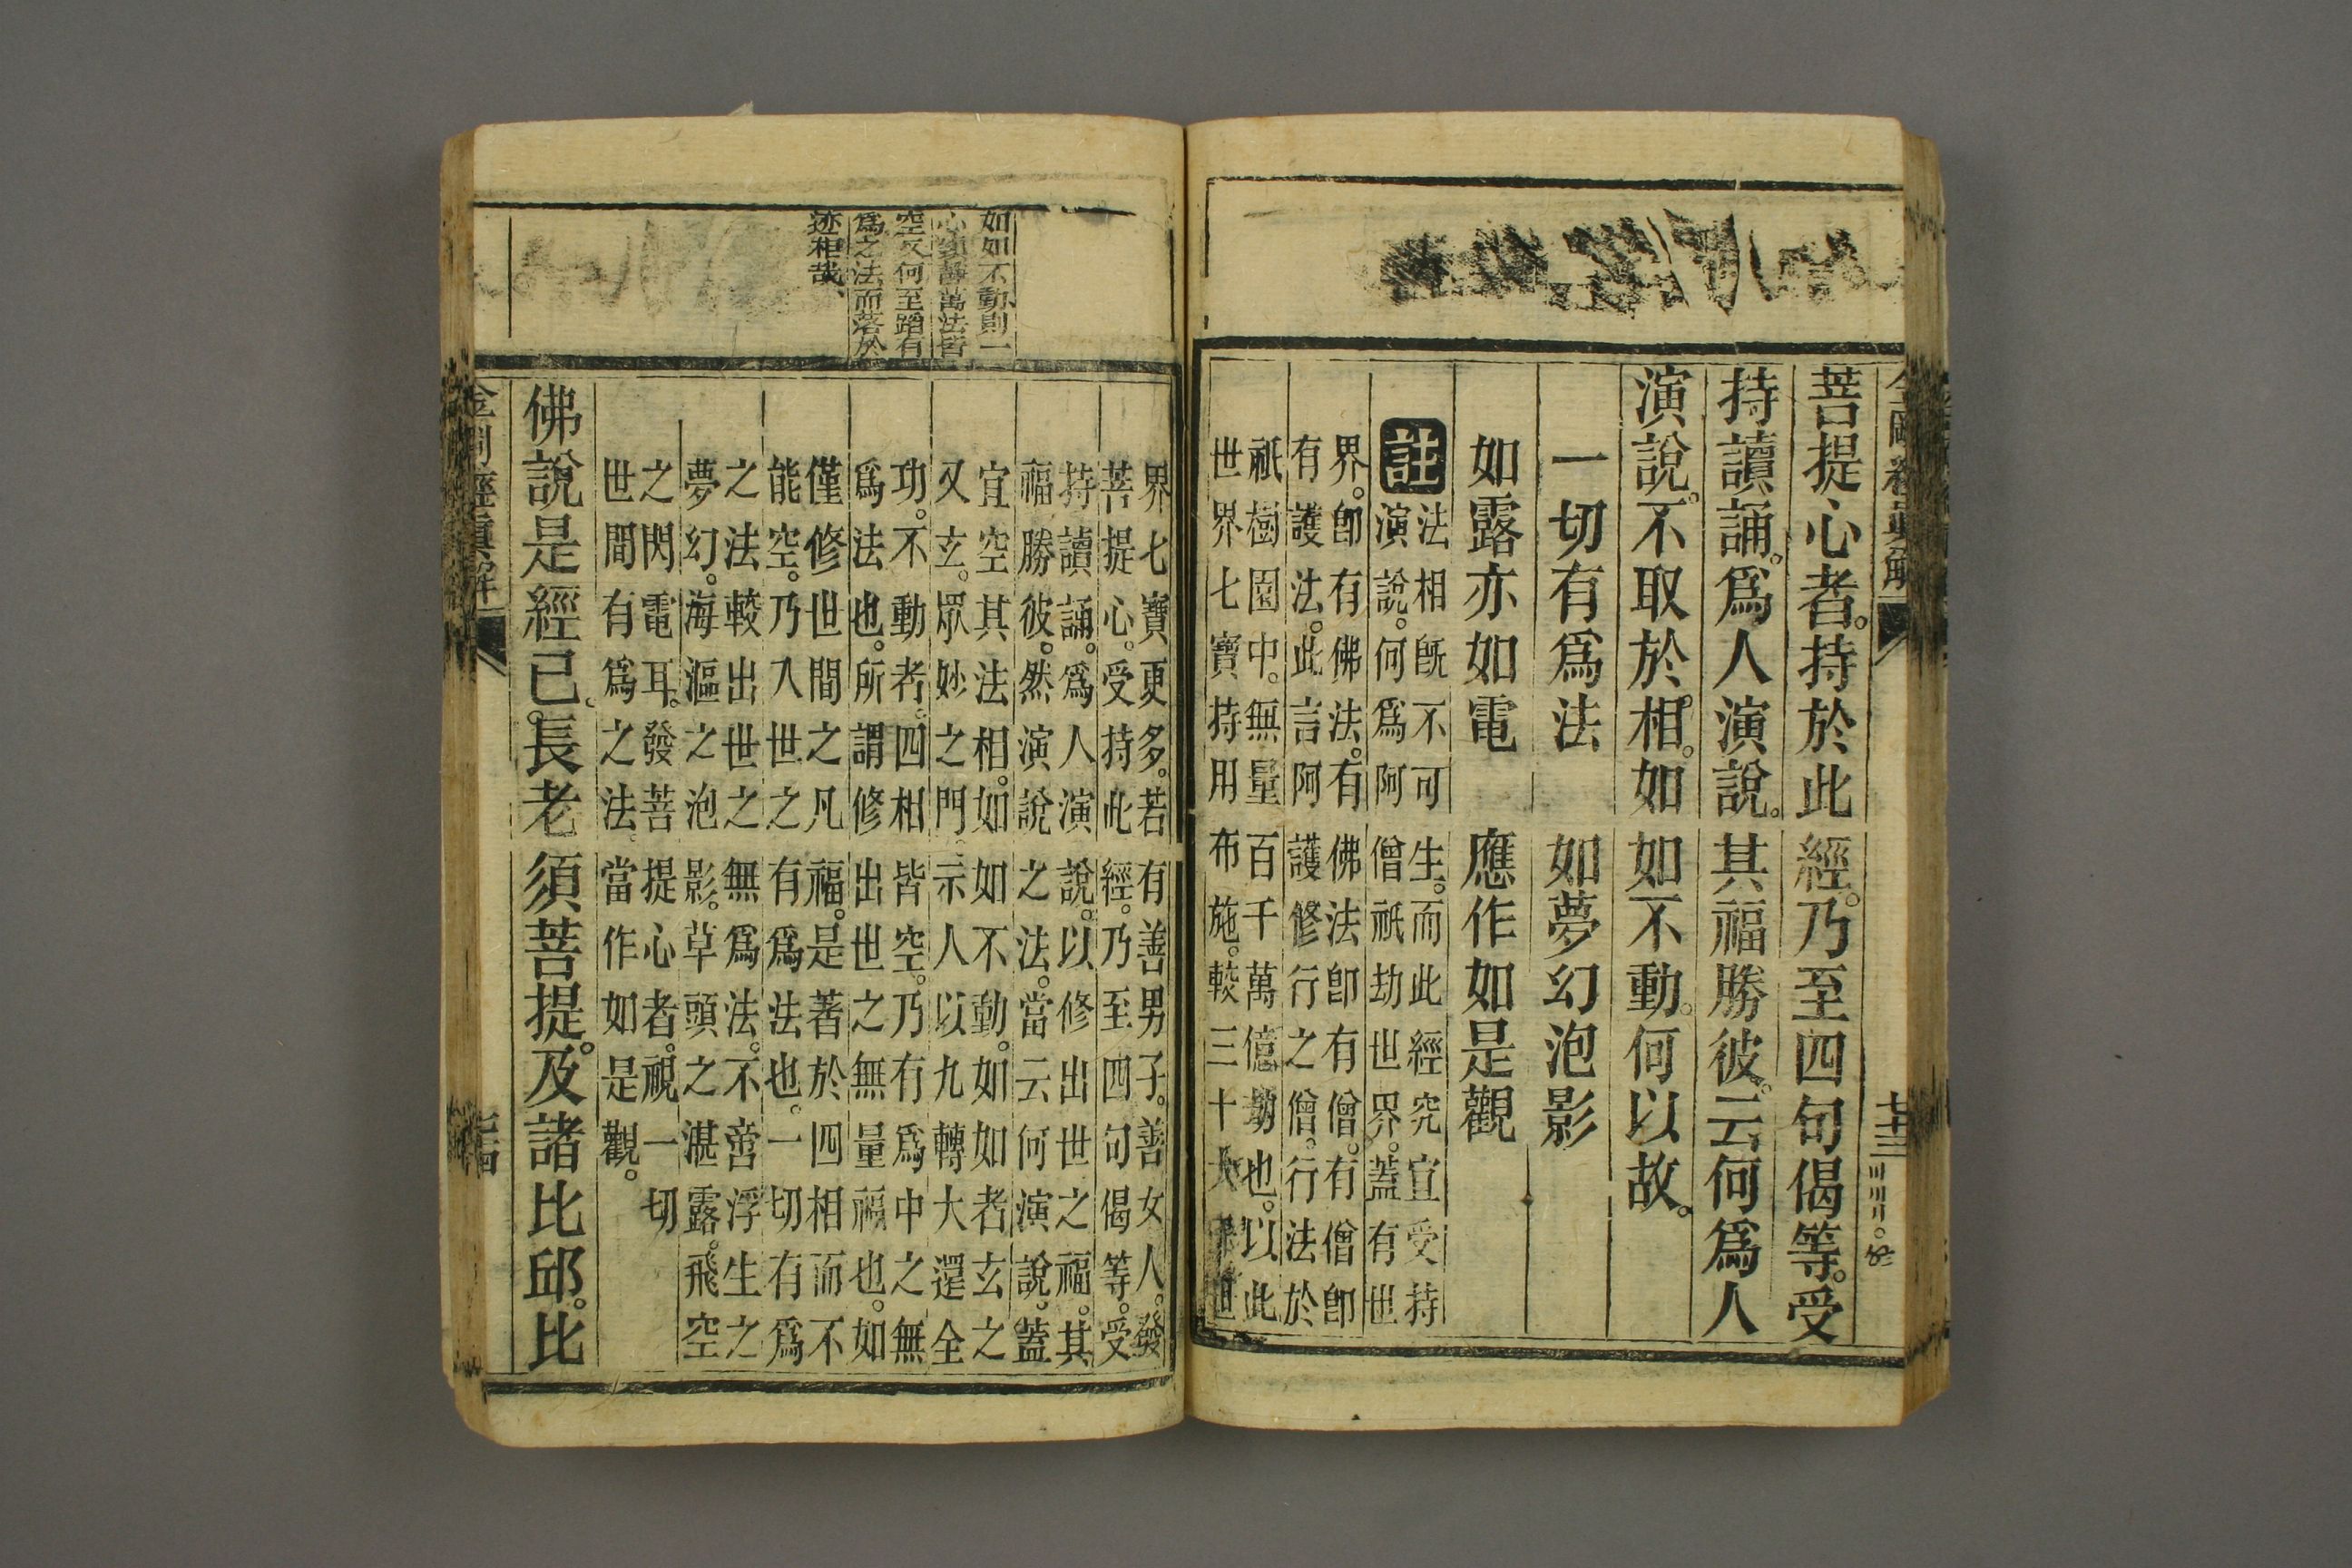 金剛經眞解
七十三
菩提心者。持於此經。乃至四句偈等。受
持讀誦。爲人演說。其福勝彼。云何爲人
演說。不取於相。如如不動。何以故。
一切有爲法 如夢幻泡影
如露亦如電 應作如是觀
註 法相旣不可生。而此經究宜受持
演說。何爲阿僧祇劫世界。蓋有世
界。卽有佛法。有佛法卽有僧。有僧卽
有護法。此言阿護修行之僧。行法於
祇樹園中。無量百千萬億劫也。以此
世界七寶持用布施。較三十大世
如如不動則一
心須靜萬法皆
空又何至蹈有
爲之法而落於
迹相哉、
界七寶更多。若有善男子。善女人。發
菩提心。受持此經。乃至四句偈等。受
持讀誦。爲人演說。以修出世之福。其
福勝彼。然演說之法。當云何演說。蓋
宜空其法相。如如不動。如如者玄之
又玄。眾妙之門。示人以九轉大還全
功。不動者。四相皆空。乃有爲中之無
爲法也。所謂修出世之無量福也。如
僅修世間之凡福。是著於四相而不
能空。乃入世之有爲法也。一切有爲
之法較出世之無爲法。不啻浮生之
夢幻。海漚之泡影。草頭之湛露。飛空
之閃電耳。發菩提心者。視一切
世間有爲之法。當作如是觀。
佛說是經已。長老須菩提。及諸比邱。比
金剛經眞解
七十四